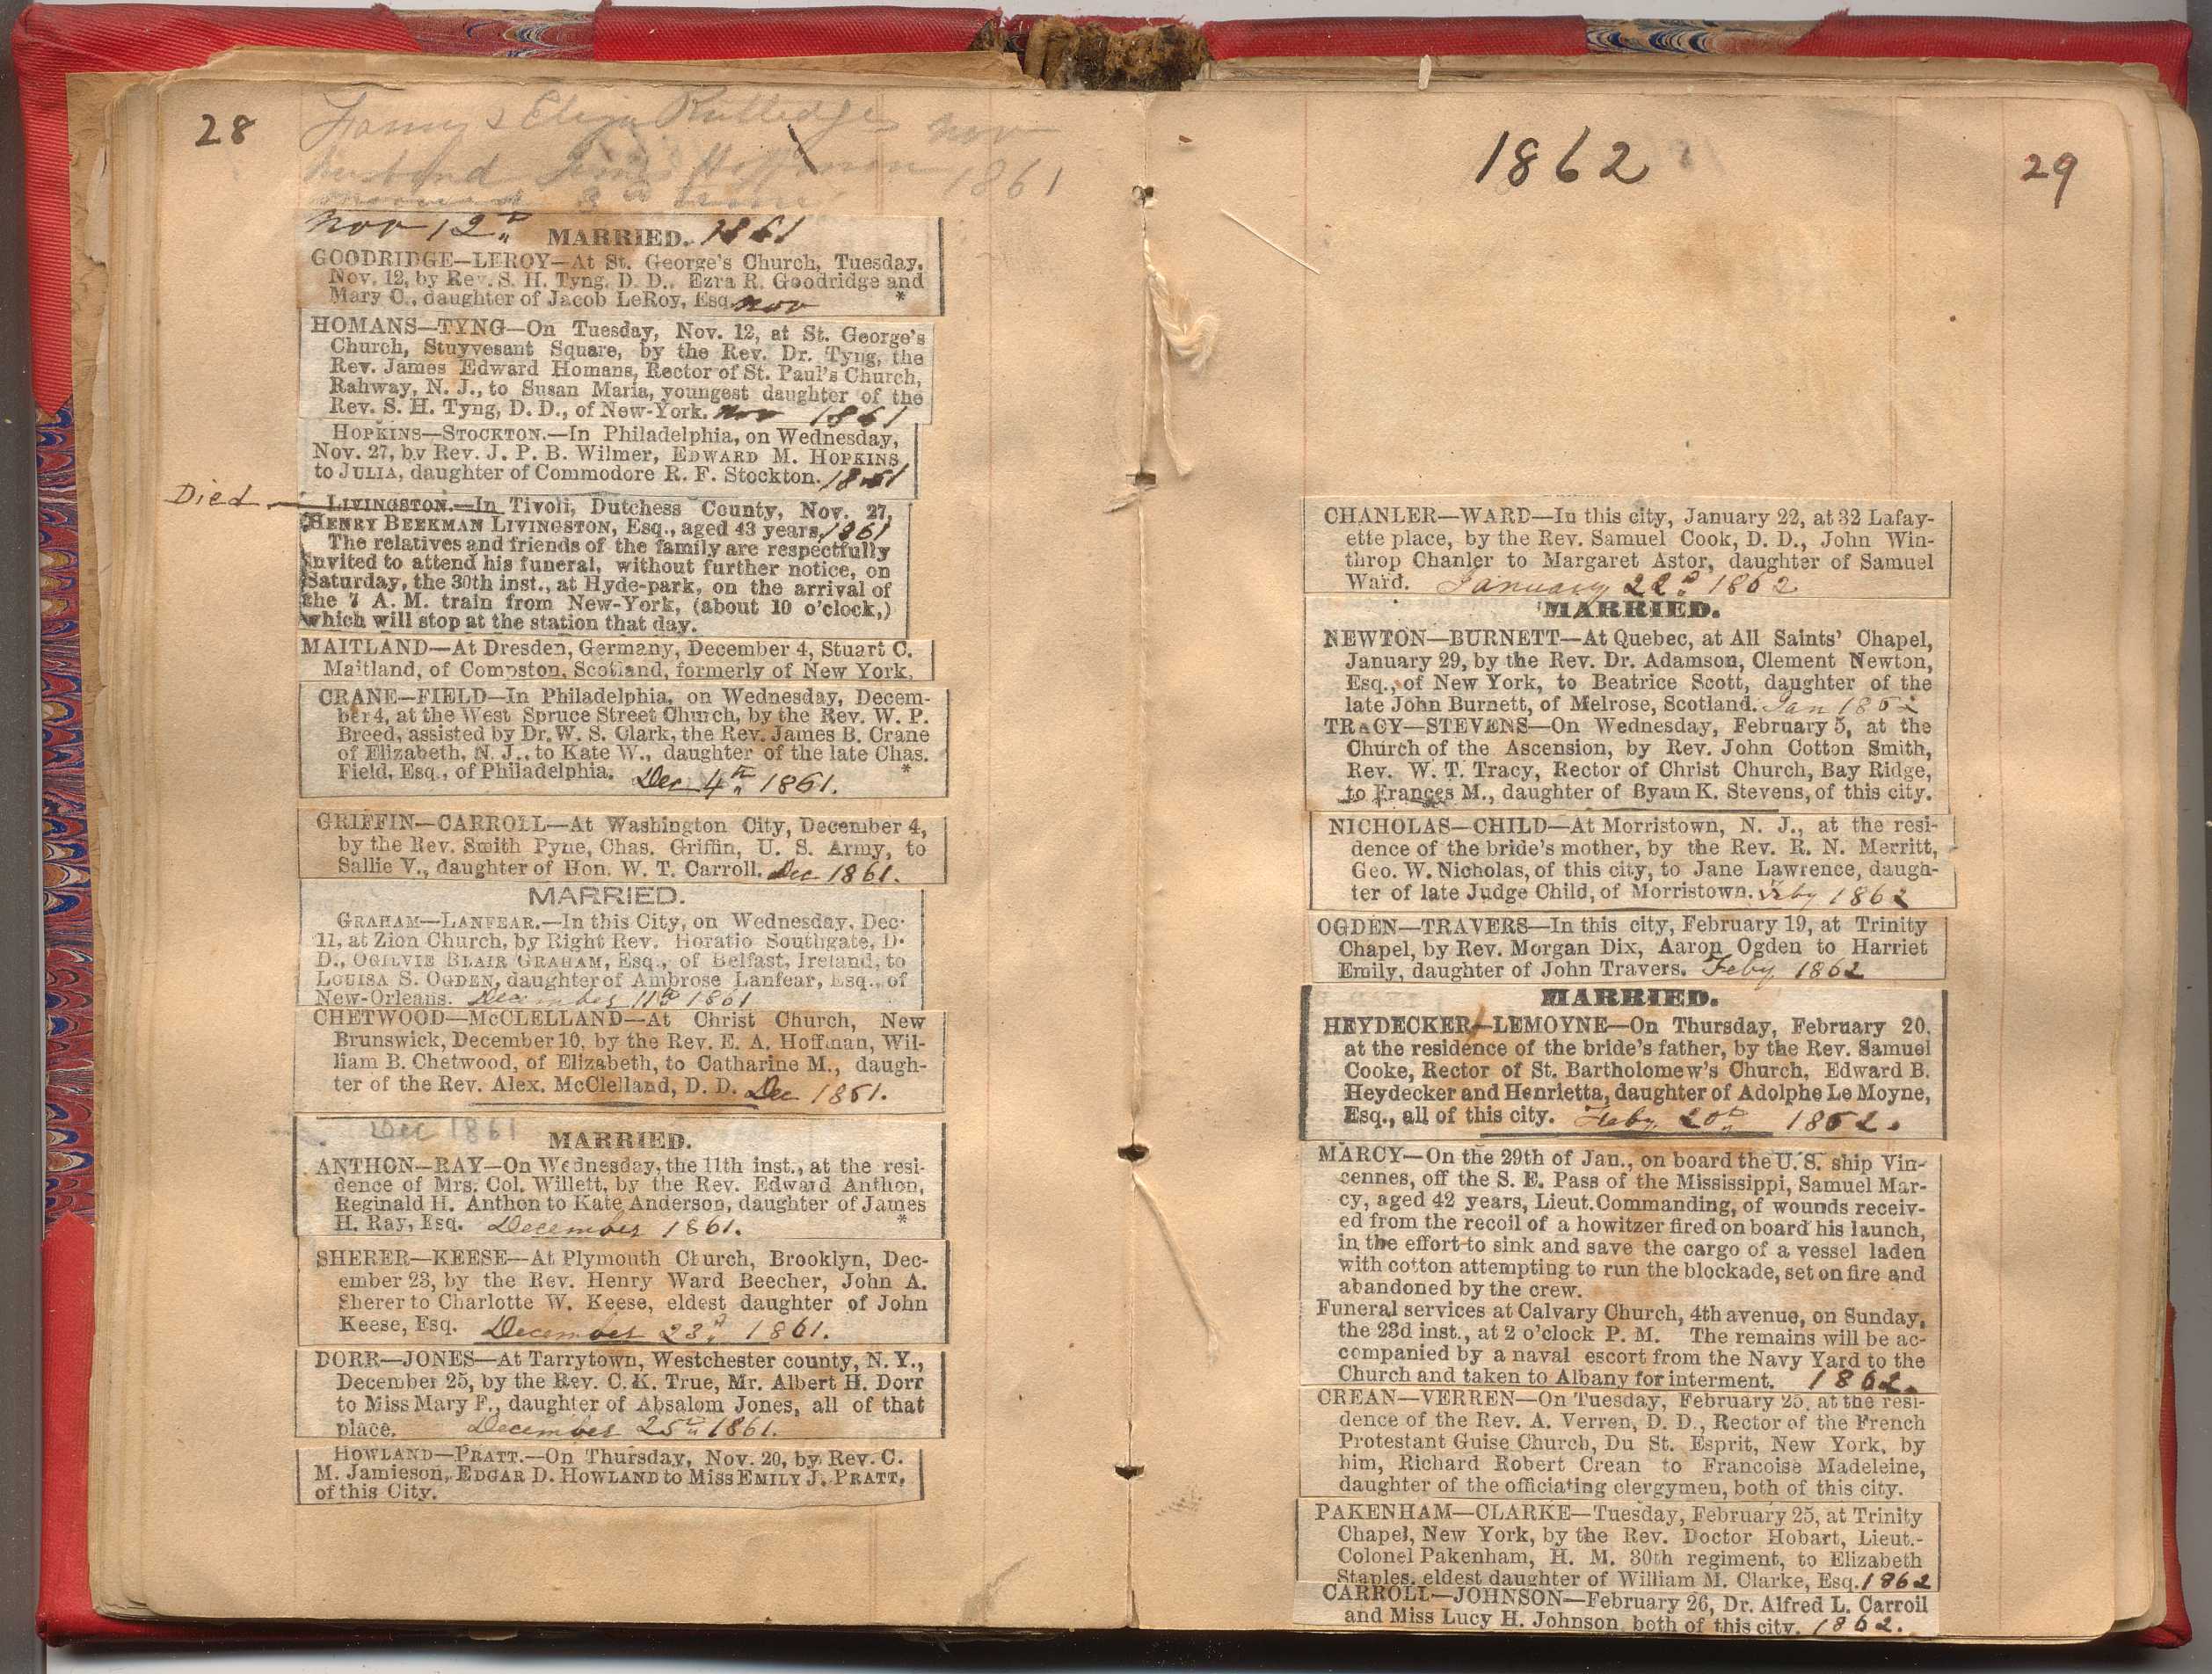 28
Fanny & Eliza Rutledge Nov
husband 1861
Nov 12th MARRIED. 1861
GOODRIDGE—LEROY—At St. George's Church, Tuesday,
Nov. 12, by Rev. S. H. Tyng, D. D., Ezra R. Goodridge and
Mary C., daughter of Jacob LeRoy, Esq. Nov *
HOMANS—TYNG—On Tuesday, Nov. 12, at St. George's
Church, Stuyvesant Square, by the Rev. Dr. Tyng, the
Rev. James Edward Homans, Rector of St. Paul's Church,
Rahway, N. J., to Susan Maria, youngest daughter of the
Rev. S. H. Tyng, D. D., of New-York. Nov 1861
HOPKINS—STOCKTON.—In Philadelphia, on Wednesday,
Nov. 27, by Rev. J. P. B. Wilmer, EDWARD M. HOPKINS
to JULIA, daughter of Commodore R. F. Stockton. 1861
Died — LIVINGSTON.—In Tivoli, Dutchess County, Nov. 27,
HENRY BEEKMAN LIVINGSTON, Esq., aged 43 years. 1861
The relatives and friends of the family are respectfully
invited to attend his funeral, without further notice, on
Saturday, the 30th inst., at Hyde-park, on the arrival of
the 7 A. M. train from New-York, (about 10 o'clock,)
which will stop at the station that day.
MAITLAND—At Dresden, Germany, December 4, Stuart C.
Maitland, of Compston, Scotland, formerly of New York.
CRANE—FIELD—In Philadelphia, on Wednesday, Decem-
ber 4, at the West Spruce Street Church, by the Rev. W. P.
Breed, assisted by Dr. W. S. Clark, the Rev. James B. Crane
of Elizabeth, N. J., to Kate W., daughter of the late Chas.
Field, Esq., of Philadelphia. Dec 4th 1861. *
GRIFFIN—CARROLL—At Washington City, December 4,
by the Rev. Smith Pyne, Chas. Griffin, U. S. Army, to
Sallie V., daughter of Hon. W. T. Carroll. Dec 1861.
MARRIED.
GRAHAM—LANFEAR.—In this City, on Wednesday, Dec.
11, at Zion Church, by Right Rev. Horatio Southgate, D.
D., OGILVIE BLAIR GRAHAM, Esq., of Belfast, Ireland, to
LOUISA S. OGDEN, daughter of Ambrose Lanfear, Esq., of
New-Orleans. December 11th 1861
CHETWOOD—McCLELLAND—At Christ Church, New
Brunswick, December 10, by the Rev. E. A. Hoffman, Wil-
liam B. Chetwood, of Elizabeth, to Catharine M., daugh-
ter of the Rev. Alex. McClelland, D. D. Dec 1861.
Dec 1861
MARRIED.
ANTHON—RAY—On Wednesday, the 11th inst., at the resi-
dence of Mrs. Col. Willett, by the Rev. Edward Anthon,
Reginald H. Anthon to Kate Anderson, daughter of James
H. Ray, Esq. December 1861. *
SHERER—KEESE—At Plymouth Church, Brooklyn, Dec-
ember 23, by the Rev. Henry Ward Beecher, John A.
Sherer to Charlotte W. Keese, eldest daughter of John
Keese, Esq. December 23d 1861.
DORR—JONES—At Tarrytown, Westchester county, N. Y.,
December 25, by the Rev. C. K. True, Mr. Albert H. Dorr
to Miss Mary F., daughter of Absalom Jones, all of that
place. December 25th 1861.
HOWLAND—PRATT.—On Thursday, Nov. 20, by Rev. C.
M. Jamieson, EDGAR D. HOWLAND to Miss EMILY J. PRATT,
of this City.
1862
29
CHANLER—WARD—In this city, January 22, at 32 Lafay-
ette place, by the Rev. Samuel Cook, D. D., John Win-
throp Chanler to Margaret Astor, daughter of Samuel
Ward. January 22d 1862
MARRIED.
NEWTON—BURNETT—At Quebec, at All Saints' Chapel,
January 29, by the Rev. Dr. Adamson, Clement Newton,
Esq., of New York, to Beatrice Scott, daughter of the
late John Burnett, of Melrose, Scotland. Jan 1862
TRACY—STEVENS—On Wednesday, February 5, at the
Church of the Ascension, by Rev. John Cotton Smith,
Rev. W. T. Tracy, Rector of Christ Church, Bay Ridge,
to Frances M., daughter of Byam K. Stevens, of this city.
NICHOLAS—CHILD—At Morristown, N. J., at the resi-
dence of the bride's mother, by the Rev. R. N. Merritt,
Geo. W. Nicholas, of this city, to Jane Lawrence, daugh-
ter of late Judge Child, of Morristown. Feby 1862
OGDEN—TRAVERS—In this city, February 19, at Trinity
Chapel, by Rev. Morgan Dix, Aaron Ogden to Harriet
Emily, daughter of John Travers. Feby 1862
MARRIED.
HEYDECKER—LEMOYNE—On Thursday, February 20,
at the residence of the bride's father, by the Rev. Samuel
Cooke, Rector of St. Bartholomew's Church, Edward B.
Heydecker and Henrietta, daughter of Adolphe Le Moyne,
Esq., all of this city. Feby 20th 1862.
MARCY—On the 29th of Jan., on board the U. S. ship Vin-
cennes, off the S. E. Pass of the Mississippi, Samuel Mar-
cy, aged 42 years, Lieut. Commanding, of wounds receiv-
ed from the recoil of a howitzer fired on board his launch,
in the effort to sink and save the cargo of a vessel laden
with cotton attempting to run the blockade, set on fire and
abandoned by the crew.
Funeral services at Calvary Church, 4th avenue, on Sunday,
the 23d inst., at 2 o'clock P. M. The remains will be ac-
companied by a naval escort from the Navy Yard to the
Church and taken to Albany for interment. 1862.
CREAN—VERREN—On Tuesday, February 25, at the resi-
dence of the Rev. A. Verren, D. D., Rector of the French
Protestant Guise Church, Du St. Esprit, New York, by
him, Richard Robert Crean to Francoise Madeleine,
daughter of the officiating clergymen, both of this city.
PAKENHAM—CLARKE—Tuesday, February 25, at Trinity
Chapel, New York, by the Rev. Doctor Hobart, Lieut.-
Colonel Pakenham, H. M. 30th regiment, to Elizabeth
Staples, eldest daughter of William M. Clarke, Esq. 1862
CARROLL—JOHNSON—February 26, Dr. Alfred L. Carroll
and Miss Lucy H. Johnson, both of this city. 1862.